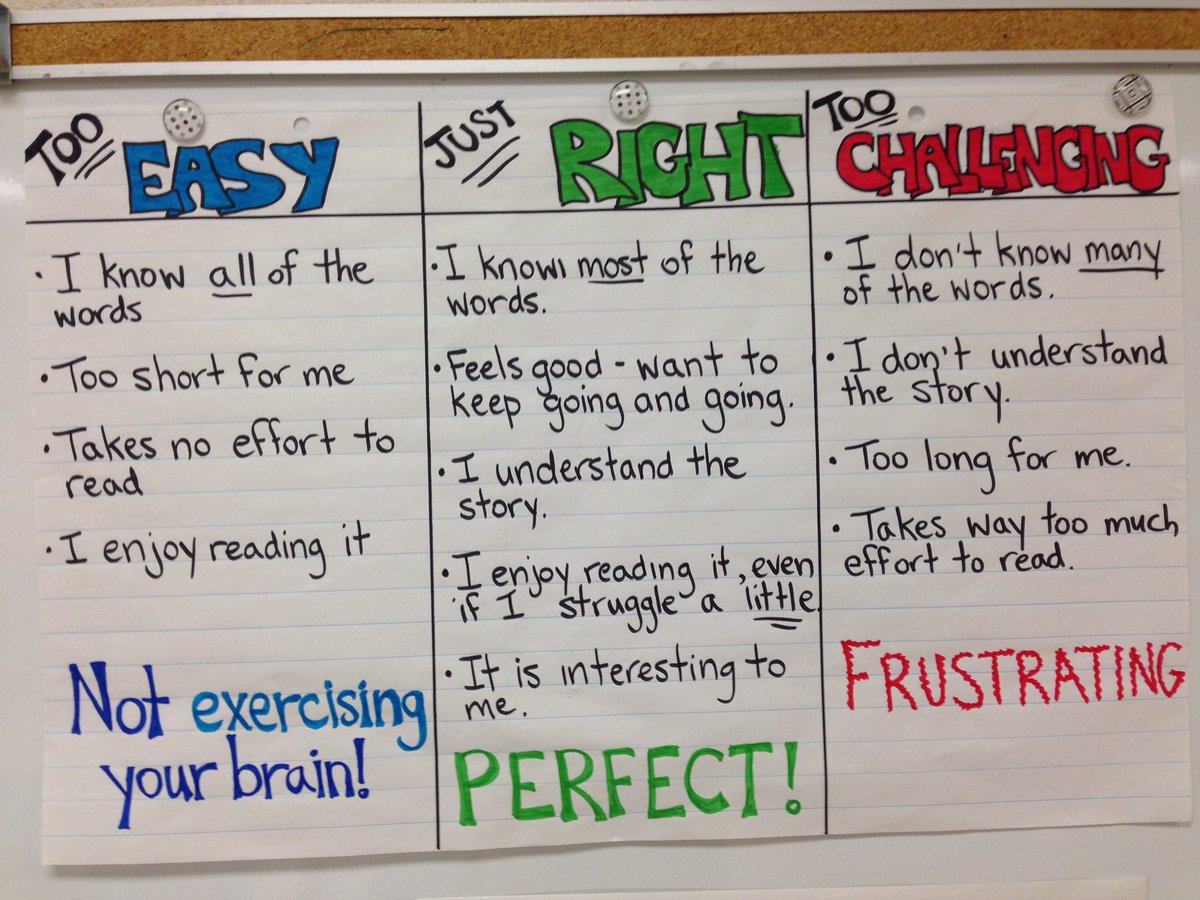 TOO EASY
• I know all of the
words
• Too short for me
• Takes no effort to
read
• I enjoy reading it
Not exercising
your brain!
JUST RIGHT
• I know most of the
words.
• Feels good - want to
keep going and going.
• I understand the
story.
• I enjoy reading it, even
if I struggle a little
• It is interesting to
me.
PERFECT!
TOO CHALLENGING
• I don't know many
of the words.
• I don't understand
the story.
• Too long for me.
• Takes way too much
effort to read.
FRUSTRATING